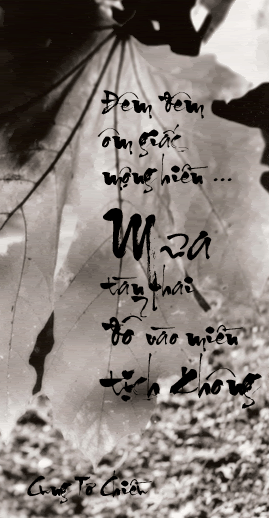 Đêm đêm
ôm giấc
mộng hiền ...
Mưa
tàn thai
đổ vào miền
tịch không
Cung Tở Chiến